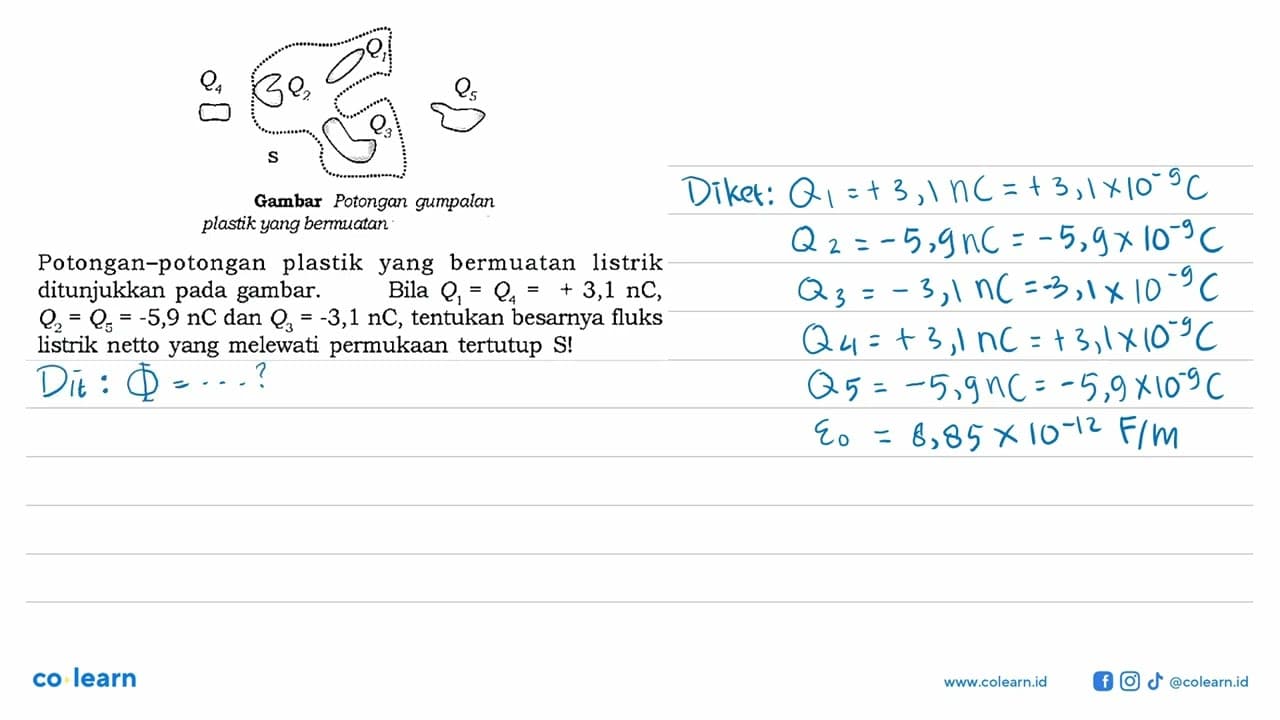 Q₁
Q₄
Q₂
Q₅
Q₃
S
Gambar Potongan gumpalan
plastik yang bermuatan
Potongan-potongan plastik yang bermuatan listrik
ditunjukkan pada gambar. Bila Q₁ = Q₄ = + 3,1 nC,
Q₂ = Q₅ = -5,9 nC dan Q₃ = -3,1 nC, tentukan besarnya fluks
listrik netto yang melewati permukaan tertutup S!
Dit : Φ = ....?
Diket: Q₁ = + 3,1 nC = + 3,1 × 10⁻⁹ C
Q₂ = - 5,9 nC = - 5,9 × 10⁻⁹ C
Q₃ = - 3,1 nC = -3,1 × 10⁻⁹ C
Q₄ = + 3,1 nC = + 3,1 × 10⁻⁹ C
Q₅ = - 5,9 nC = - 5,9 × 10⁻⁹ C
ε₀ = 8,85 × 10⁻¹² F/m
co learn
www.colearn.id
@colearn.id